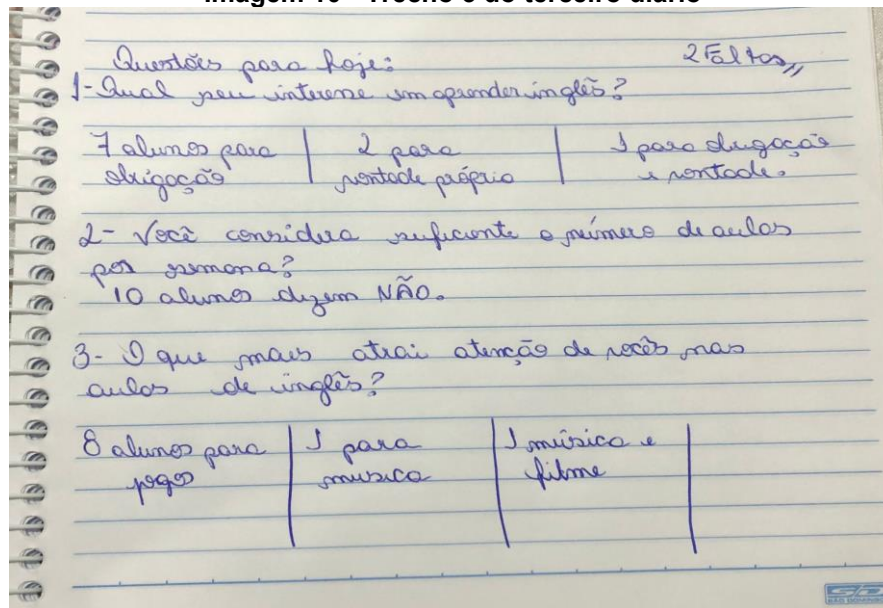 Questões para hoje: 2 Faltas,,
1- Qual seu interesse em aprender inglês?
7 alunos para obrigação | 2 para vontade própria | 1 para obrigação e vontade.
2- Você considera suficiente o número de aulas
por semana?
10 alunos dizem NÃO.
3- O que mais atrai atenção de vocês nas
aulas de inglês?
8 alunos para jogos | 1 para musica | 1 música e filme
SÃO DOMINGOS